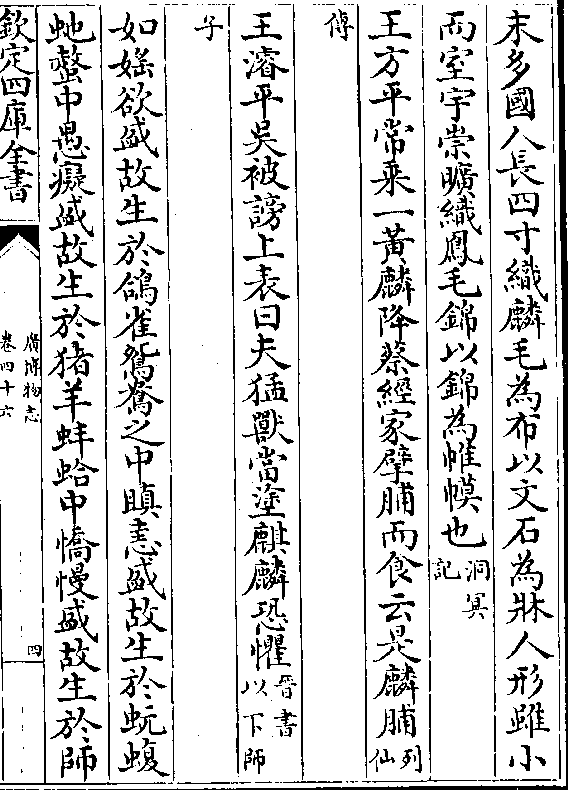 末多國人長四寸織麟毛為布以文石為牀人形雖小
而室宇崇曠織鳳毛錦以錦為帷幙也洞冥記
王方平常乗一黃麟降蔡經家擘脯而食云是麟脯列仙
傳
王濬平吳被謗上表曰夫猛獸當塗麒麟恐懼晉書以下師
子
如婬欲盛故生於鴿雀鴛鴦之中瞋恚盛故生於蚖蝮
虵螫中愚癡盛故生於猪羊蚌蛤中憍慢盛故生於師
欽定四庫全書
廣博物志
卷四十六
四